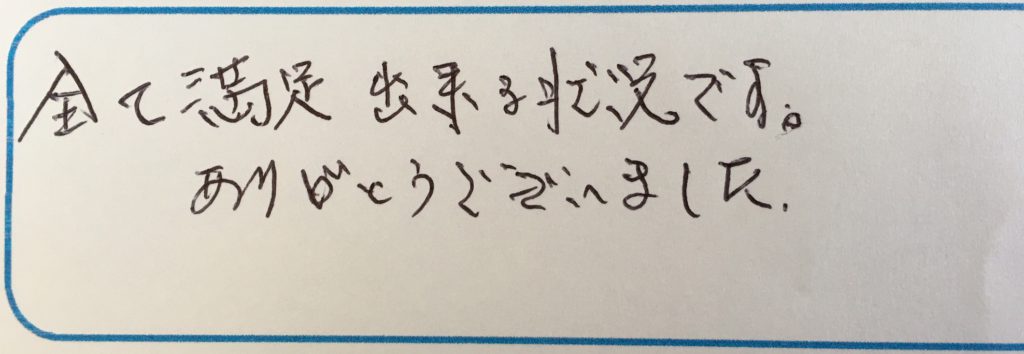 全て満足出来る状況です。
ありがとうございました.